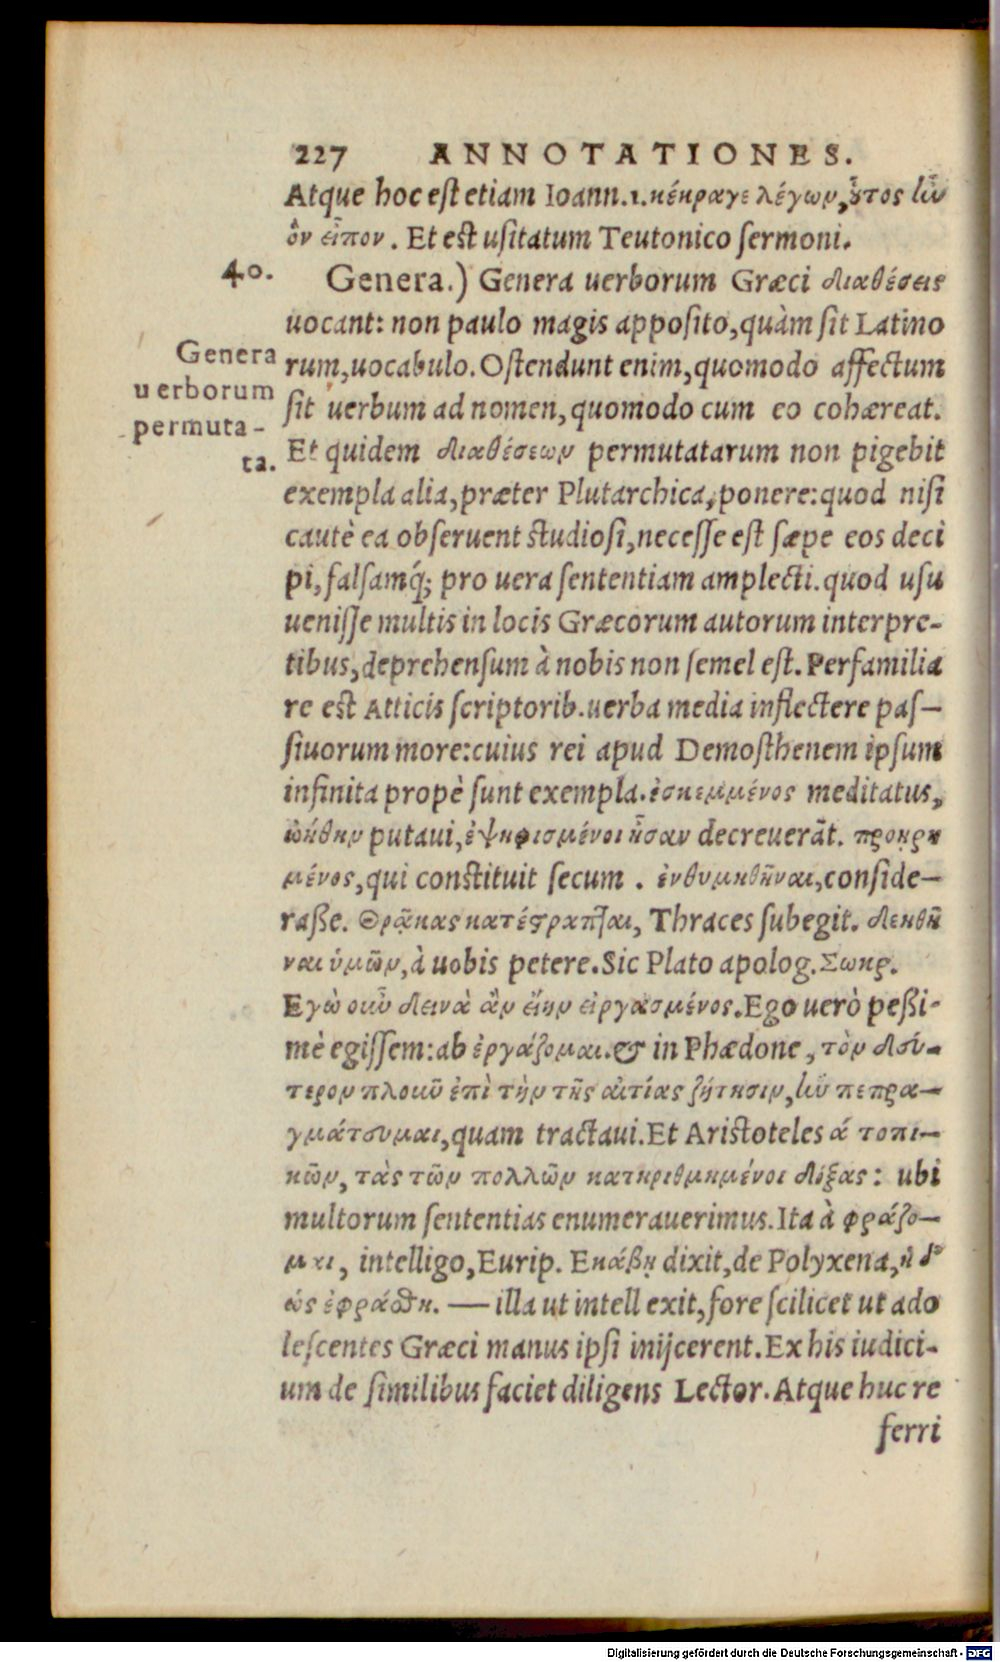 227 ANNOTATIONES.
Atque hoc est etiam Ioann.1.κέκραγε λέγων,οὗτος ἦν
ὃν εἶπον. Et est usitatum Teutonico sermoni.
40.
Genera.) Genera uerborum Græci διαθέσεις
uocant: non paulo magis apposito,quàm sit Latino
Genera
uerborum
permuta-
ta.
rum,uocabulo.Ostendunt enim,quomodo affectum
sit uerbum ad nomen,quomodo cum eo cohæreat.
Et quidem διαθέσεων permutatarum non pigebit
exempla alia,præter Plutarchica,ponere:quod nisi
cautè ea obseruent studiosi,necesse est sæpe eos deci
pi,falsamq́; pro uera sententiam amplecti.quod usu
uenisse multis in locis Græcorum autorum interpre-
tibus,deprehensum à nobis non semel est.Perfamilia
re est Atticis scriptorib.uerba media inflectere pas-
siuorum more:cuius rei apud Demosthenem ipsum
infinita propè sunt exempla.ἐσκεμμένος meditatus,
ᾠήθην putaui,ἐψηφισμένοι ἦσαν decreuerāt. προῃρη
μένος,qui constituit secum . ἐνθυμηθῆναι,conside-
raße. Θρᾷκας κατέστραπται, Thraces subegit. δεηθῆ
ναι ὑμῶν,à uobis petere.Sic Plato apolog.Σωκρ.
Εγὼ οὖν δεινὰ ἂν εἴην εἰργασμένος.Ego uerò peßi-
mè egissem:ab ἐργάζομαι.& in Phædone, τὸν δεύ-
τερον πλοῦν ἐπὶ τὴν τῆς αἰτίας ζήτησιν,ἣν πεπρα-
γμάτευμαι,quam tractaui.Et Aristoteles ά τοπι-
κῶν, τὰς τῶν πολλῶν κατηριθμημένοι δόξας: ubi
multorum sententias enumerauerimus.Ita à φράζο-
μαι, intelligo,Eurip. Εκάβῃ dixit,de Polyxena,ἡ δ'
ὡς ἐφράσθη. — illa ut intellexit,fore scilicet ut ado
lescentes Græci manus ipsi inijcerent.Ex his iudici-
um de similibus faciet diligens Lector.Atque huc re
ferri
Digitalisierung gefördert durch die Deutsche Forschungsgemeinschaft - DFG